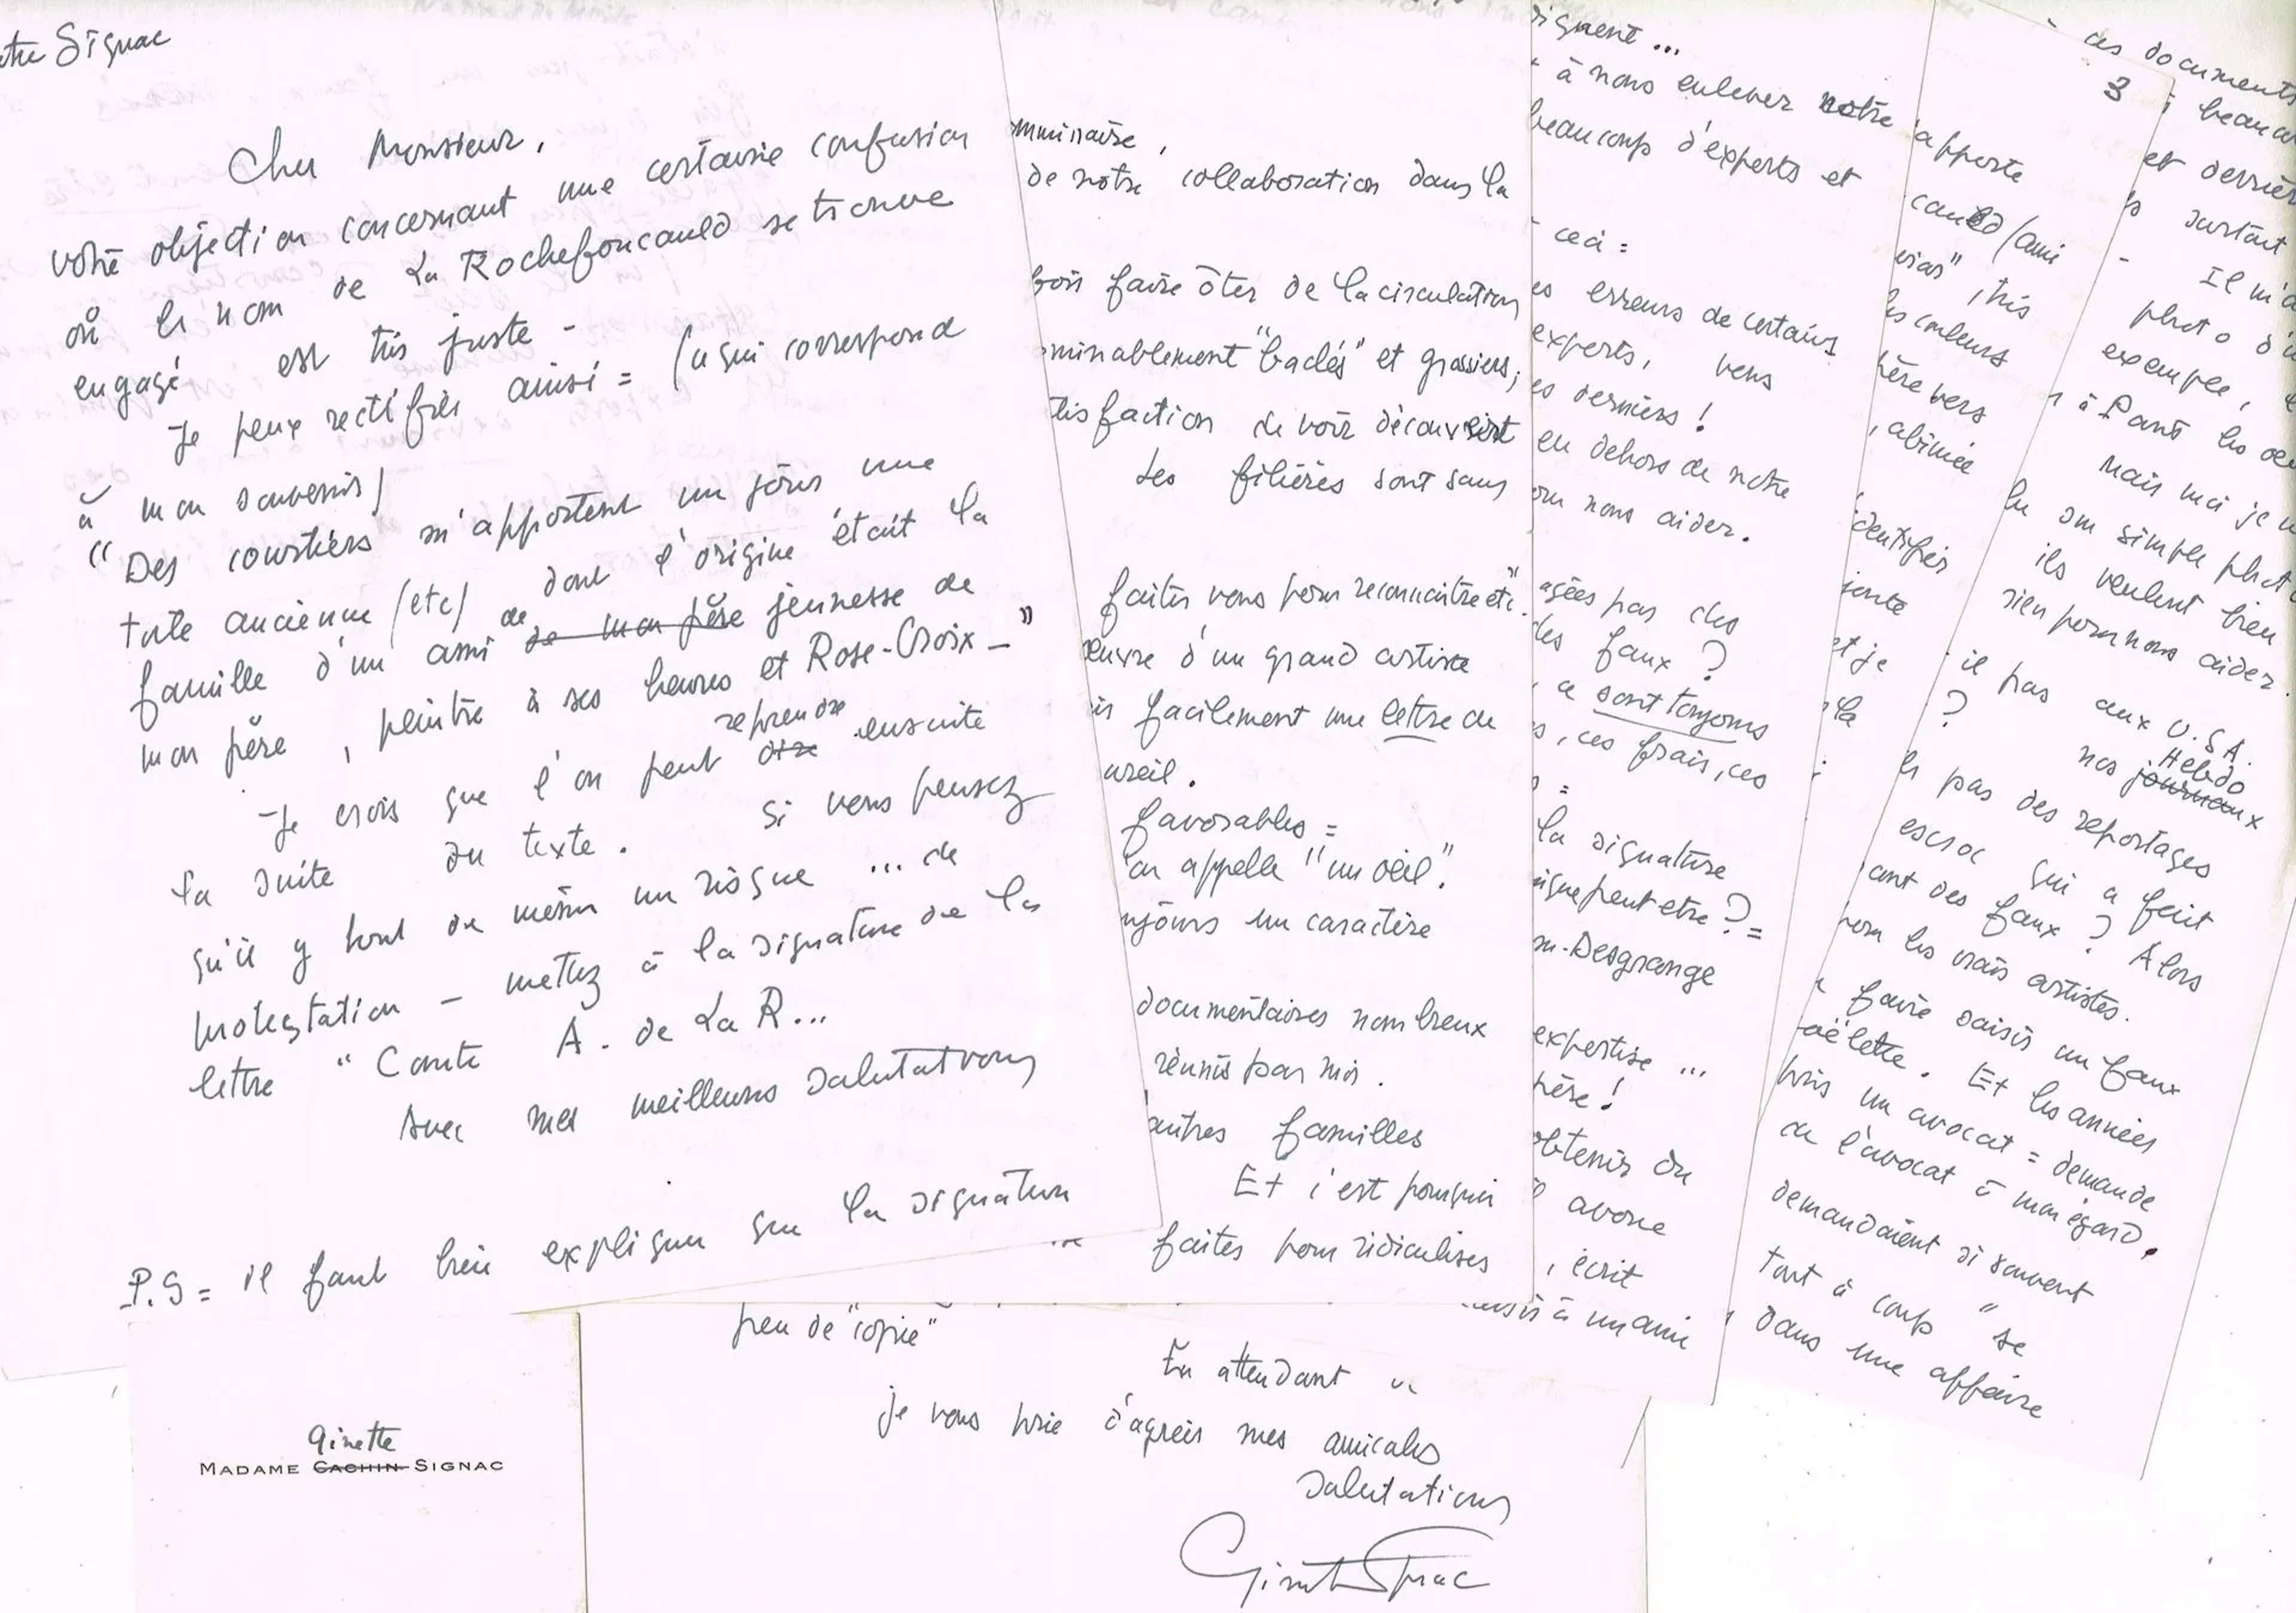 Signac
Cher Monsieur,
votre objection concernant une certaine confusion
où le nom de La Rochefoucauld se trouve
engagé est très juste -
Je peux rectifier ainsi = (ce qui correspond
à mon souvenir)
"Des courtiers m'apportent un jour une
toile ancienne (etc) dont l'origine était la
famille d'un ami de de mon père jeunesse de
mon père, peintre à ses heures et Rose-Croix -"
Je crois que l'on peut dire reprendre ensuite
la suite du texte. Si vous pensez
qu'il y tout de même un risque ... de
protestation - mettez à la signature de la
lettre "Comte A. de La R...
Avec mes meilleures salutations
P.S = il faut bien expliquer que la signature
Ginette
MADAME CACHIN SIGNAC
de notre collaboration dans la
faire ôter de la circulation
"baclés" et grossiers,
de voir découvert
Les filières sont sans
faites vous pour reconnaitre etc".
d'un grand artiste
facilement une lettre de
favorables =
appelle "un œil".
un caractère
documentaires nombreux
réunis par moi.
autres familles
Et c'est pourquoi
faites pour ridiculiser
peu de "copie"
En attendant
je vous prie d'agréer mes amicales
salutations
Ginette Signac
...
à nous enlever notre
beaucoup d'experts et
ceci =
erreurs de certains
experts, vers
derniers !
en dehors de notre
nous aider.
par des
des faux ?
ce sont toujours
, ces frais, ces
la signature
peut etre ? =
-Desgrange
expertise ...
père !
obtenir du
avoue
, écrit
à un ami
3
apporte
(ami
", très
les couleurs
vers
, abimée
identifier
et je
la
ces documents
et
surtout
- Il m'a
photo
exemple,
à Pant les
Mais moi je
simple
ils veulent bien
rien pour nous aider.
il pas aux U.S.A.
? nos journaux Hebdo
pas des reportages
escroc qui a fait
des faux ? Alors
les vrais artistes.
faire saisir un faux
. Et les années
pris un avocat = demande
l'avocat à mon égard.
demandaient si souvent
tout à coup " se
dans une affaire